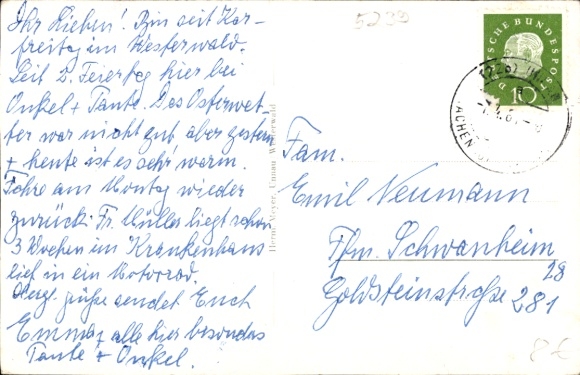 Ihr Lieben! Bin seit Kar-
freitag im Westerwald.
Seit 2. Feiertag hier bei
Onkel + Tante. Das Osterwet-
ter war nicht gut aber gestern
+ heute ist es sehr warm.
Fahre am Montag wieder
zurück. Fr. Müller liegt schon
3 Wochen im Krankenhaus
lief in ein Motorrad.
Herzl. Grüße sendet Euch
Emma, alle hier besonders
Tante + Onkel.
Herm. Meyer, Unnau Westerwald
5239
DEUTSCHE BUNDESPOST
10
Fam.
Emil Neumann
Ffm. Schwanheim
28
Goldsteinstraße 281
8€